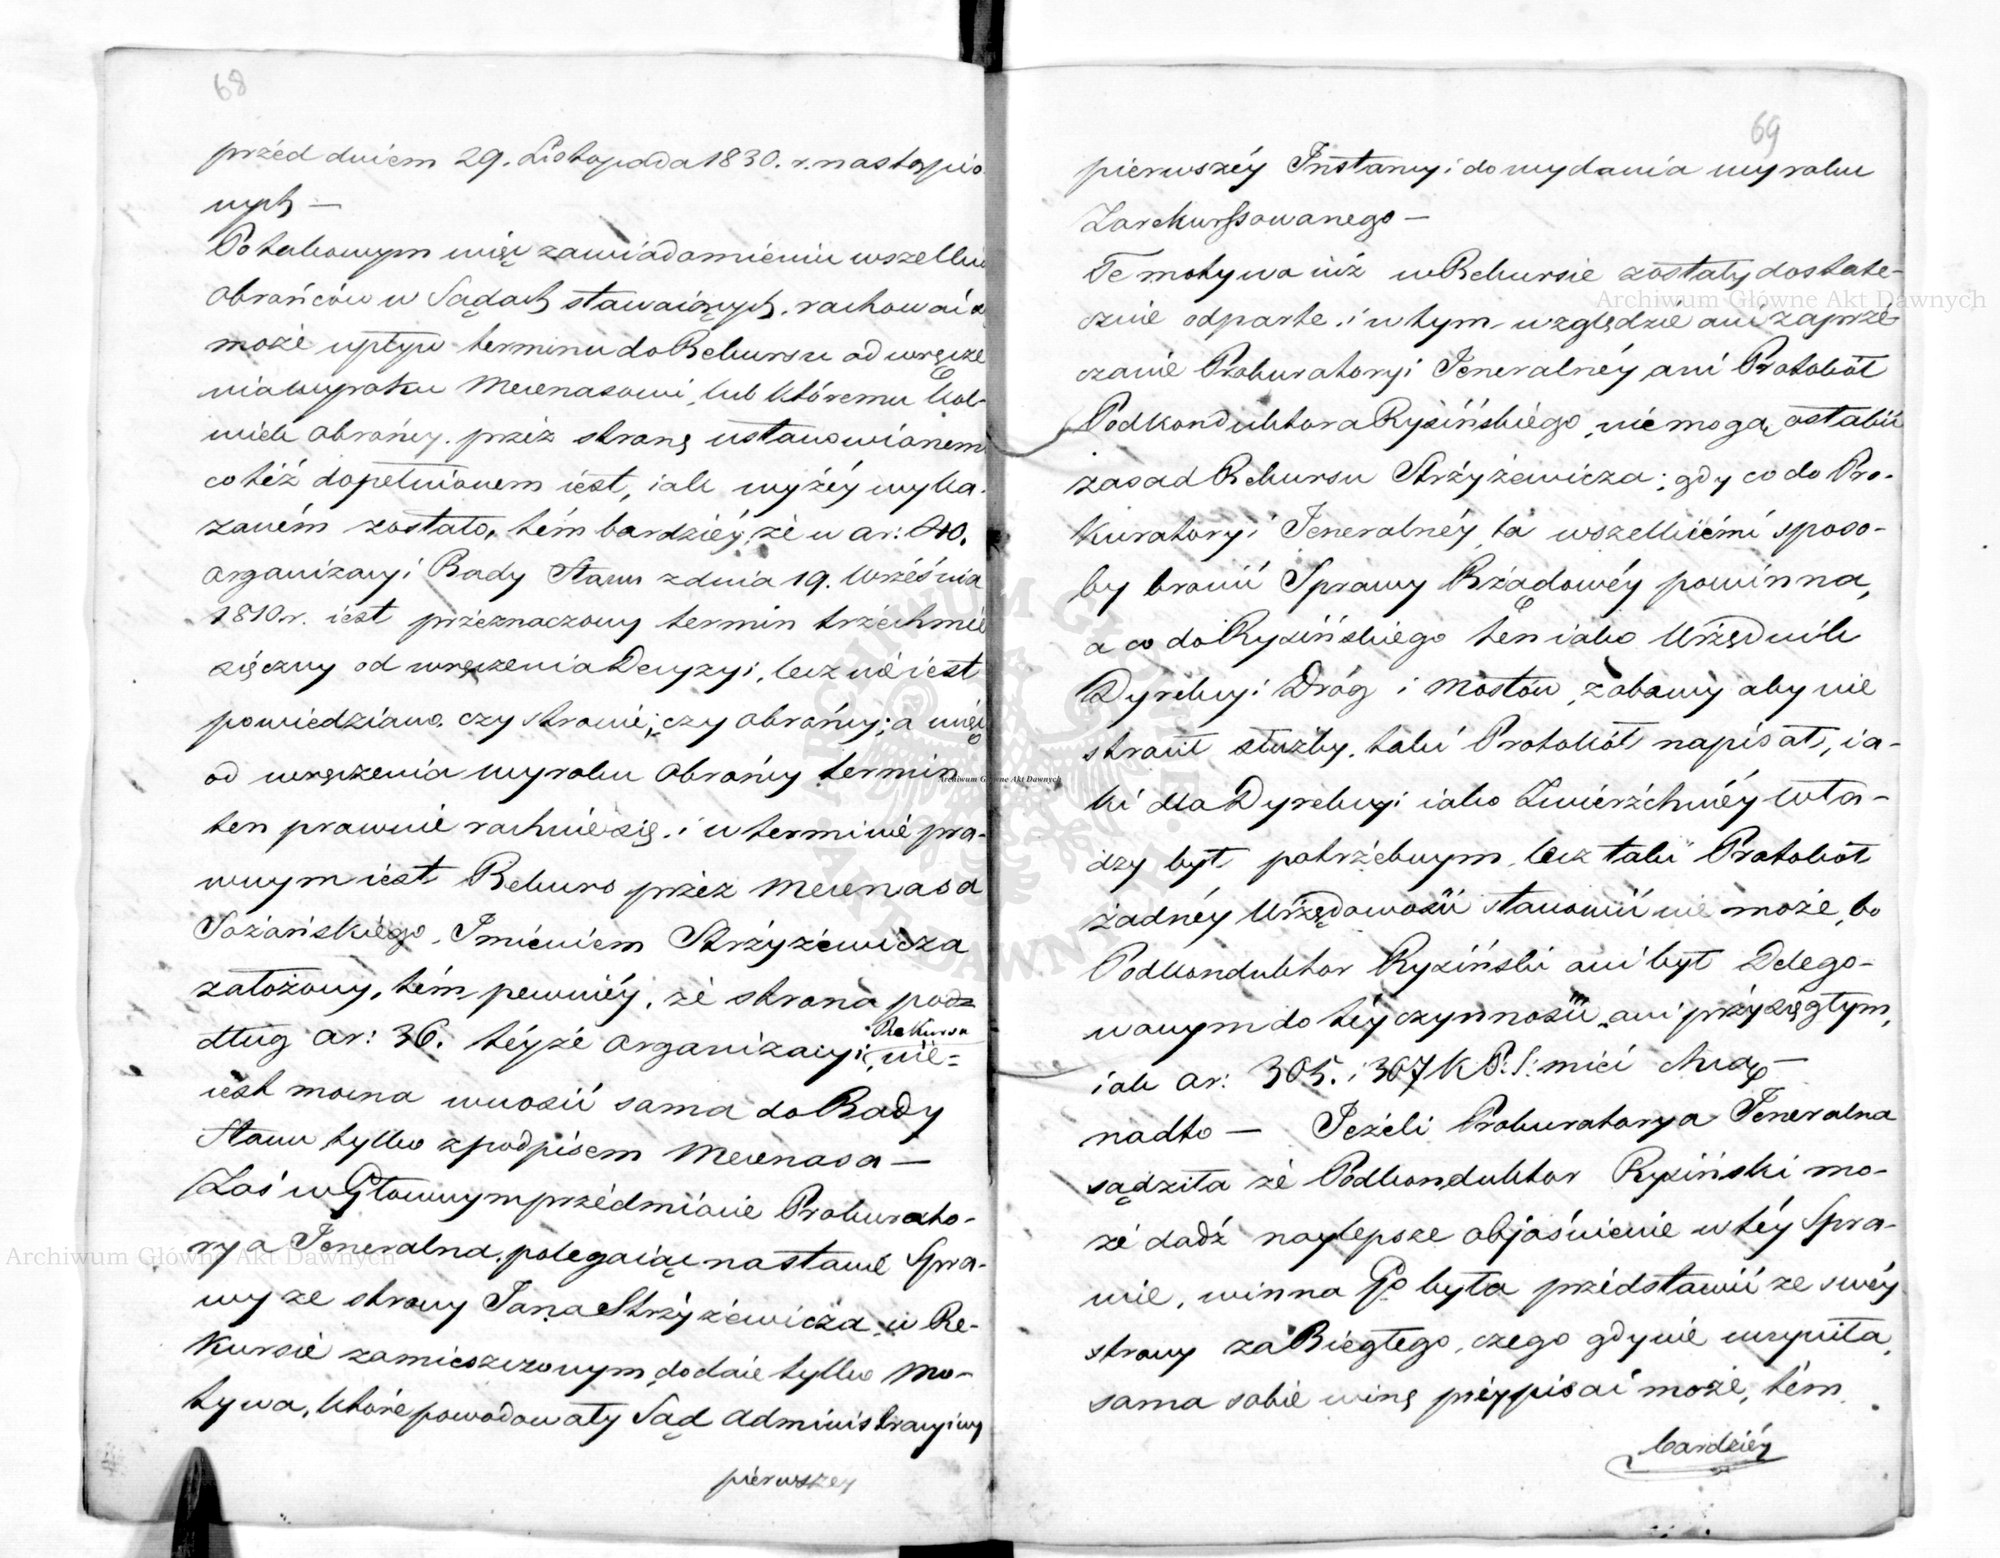 68
przéd dniem 29. Listopada 1830. r. nastąpio
nych —
Po takowym więc zawiadomieniu wszelkich
obrońców w Sądach stawaiących, rachować
może upływ terminu do Rekursu od wręcze
nia wyroku Mecenasowi, lub któremu kol-
wiek obrońcy. przez stronę ustanowionem
co téż dopełnionem iest, iak wyżéy wyka-
zaném zostało, tém bardziéy, że w ar: 40.
organizacyi Rady Stanu z dnia 19. Września
1810. r. iest przeznaczony termin trzechmie
sięczny od wręczenia Decyzyi, lecz nie iest
powiedziano, czy stronie; czy obrońcy; a więc
od wręczenia wyroku obrońcy termin
ten prawnie rachuie się. i w terminie pra-
wnym iest Rekurs przez Mecenasa
Sozańskiégo, Imieniem Strzyżewicza
założony, tém pewniéy, że strona podz
Rekursu
dług ar: 36. téyże organizacyi, nie=
iest mocna wnosić sama do Rady
Stanu tylko z podpisem Mecenasa —
Zaś w Głownym przédmiocie Prokurato-
rya Jeneralna, polegaiąc na stanie Spra-
wy ze strony Jana Strzyżewicza, w Re-
kursie zamieszczonym, dodaie tylko mo-
tywa, które powodowały Sąd administracyiny
pierwszey
69
pierwszéy Instancyi do wydania wyroku
Zarekurssowanego —
Te motywa iuż w Rekursie zostały dostate-
cznie odparte. i w tym względzie ani zaprze
czanie Prokuratoryi Jeneralnéy, ani Protokół
Podkonduktora Ryxińskiégo, nie mogą osłabić
zasad Rekursu Strżyżewicza; gdy co do Pro-
kuratoryi Jeneralnéy, ta wszelkiémi sposo-
by bronić Sprawy Rządowéy powinna,
a co do Ryxińskiego ten iako Urzędnik
Dyrekcyi Dróg i Mostów, z obawy aby nie
stracił służby. taki Protokół napisał, ia-
ki dla Dyrekcyi iako Zwierzchniéy Wła-
dzy był potrzebnym, lecz taki Protokół
żadnéy Urzędowości stanowić nie może, bo
Podkonduktor Ryxiński ani był Delego-
wanym do téy czynności, ani przysięgłym,
iak ar: 305. i 307 K. P. S: mieć chcą —
nadto — Jeżeli Prokuratorya Jeneralna
sądziła że Podkonduktor Ryxiński mo-
że dadź naylepsze objaśnienie w téy Spra-
wie, winna Go była przédstawić ze swéy
strony za Biegłego, czego gdy nie uczyniła,
sama sobie winę przypisać może, tém
bardziéy
Archiwum Główne Akt Dawnych
Archiwum Główne Akt Dawnych
Archiwum Główne Akt Dawnych
ARCHIWUM GŁÓWNE AKT DAWNYCH